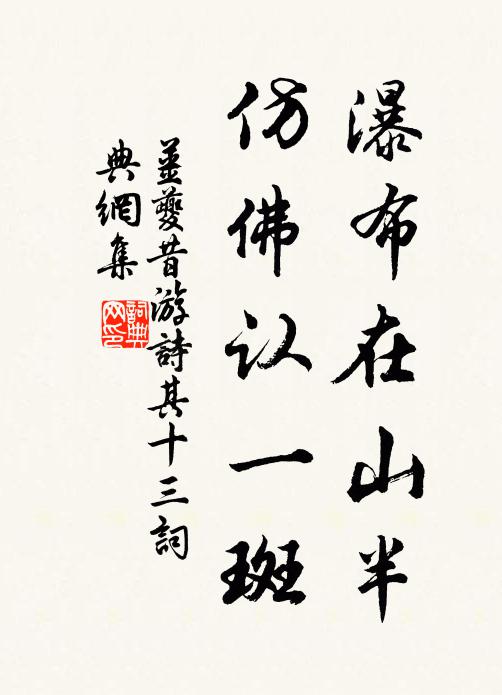 瀑布在山半
仿佛认一斑
姜夔昔游詩其十三詞
典網集
詞典
网印